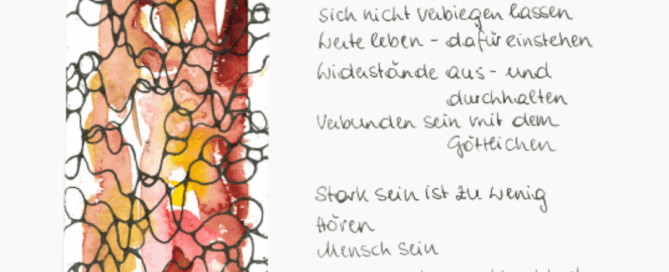 sich nicht verbiegen lassen
Werte leben - dafür einstehen
Widerstände aus- und
durchhalten
Verbunden sein mit dem
Göttlichen
Stark sein ist zu wenig
Hören
Mensch sein